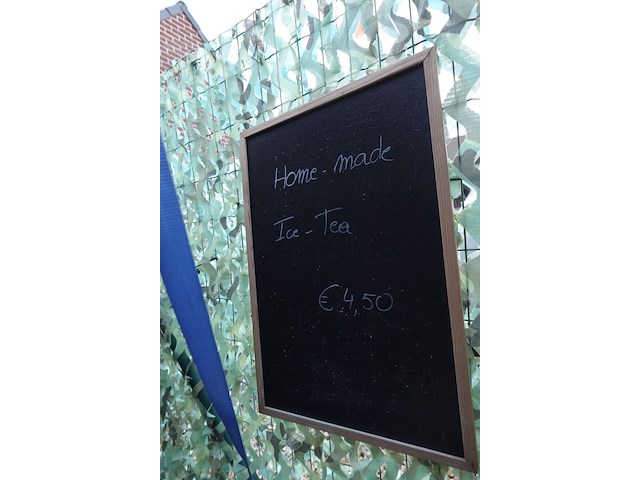 Home-made
Ice-Tea
€4,50